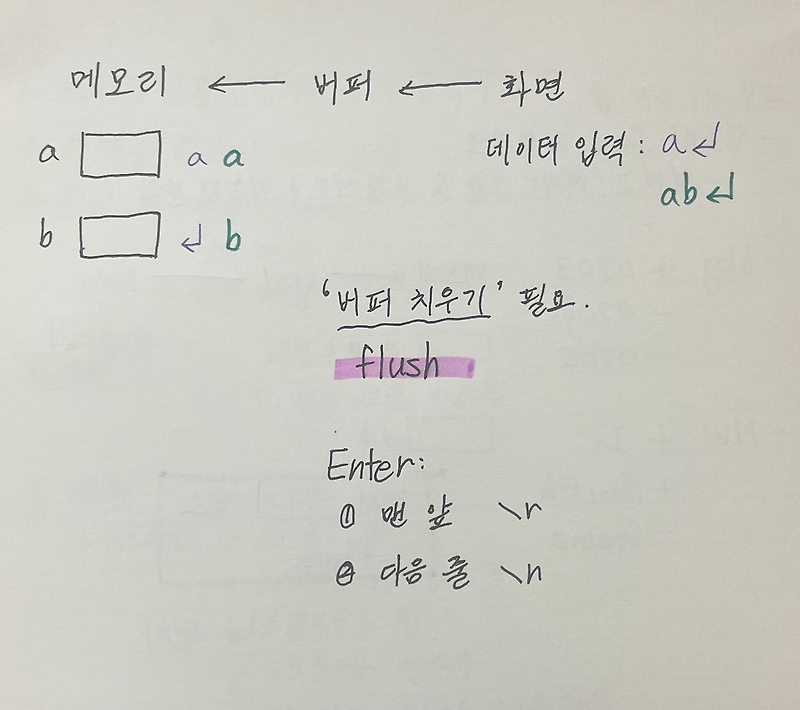 메모리 ← 버퍼 ← 화면
데이터 입력 : a↵
ab↵
a a a
b ↵ b
'버퍼 치우기' 필요.
flush
Enter:
① 맨 앞 \r
② 다음 줄 \n